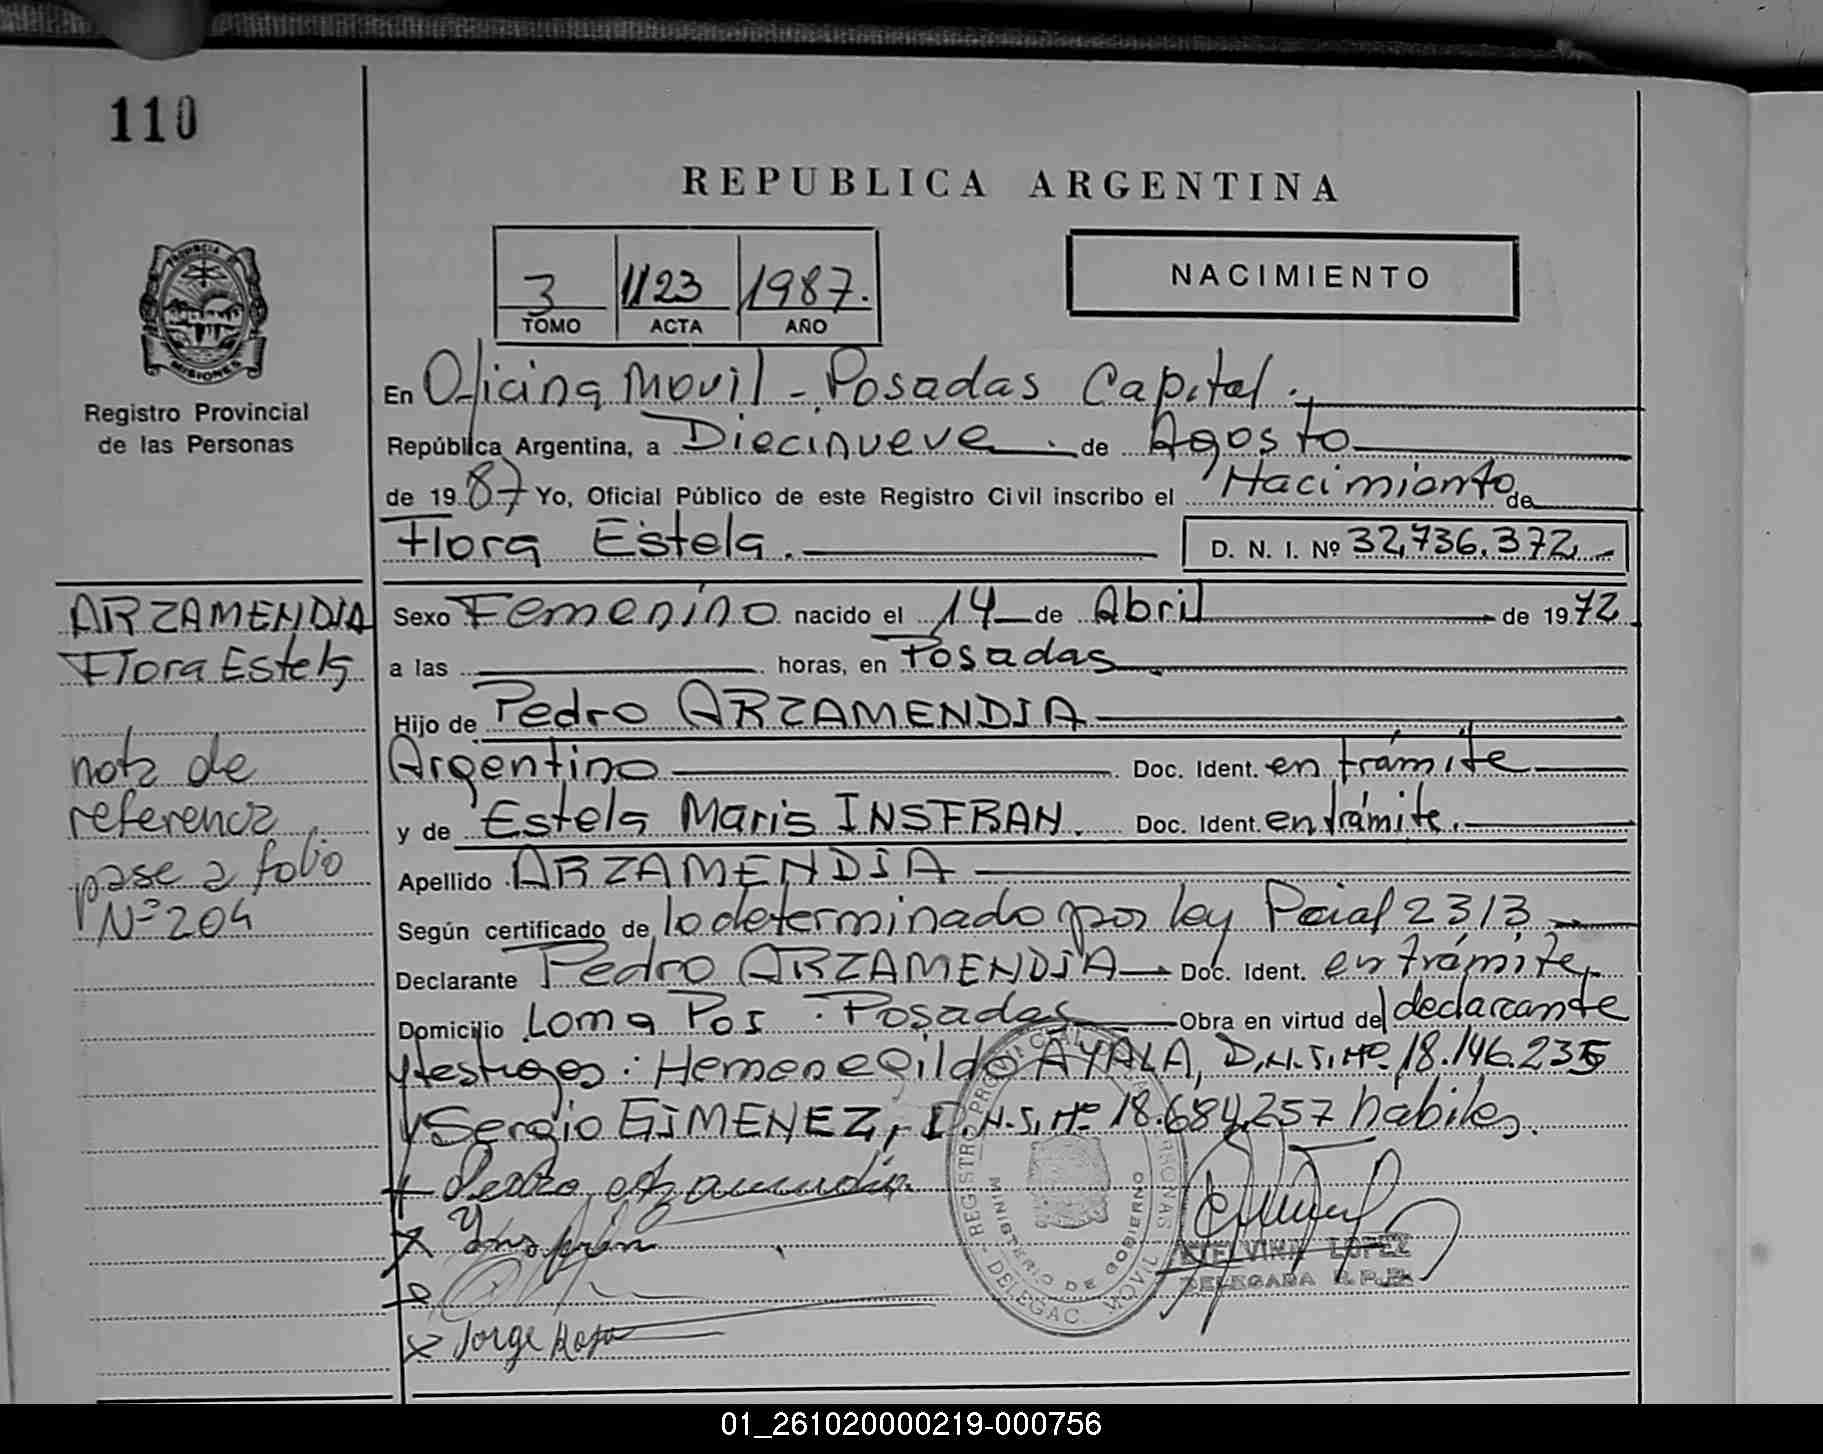 110
REPUBLICA ARGENTINA
PROVINCIA DE
MISIONES
Registro Provincial
de las Personas
3 1123 1987.
TOMO ACTA AÑO
NACIMIENTO
En Oficina Movil - Posadas Capital.
República Argentina, a Diecinueve de Agosto
de 1987 Yo, Oficial Público de este Registro Civil inscribo el Nacimiento de
Flora Estela.
D. N. I. Nº 32,736.372
ARZAMENDIA
Flora Estela
nota de
referencia
pase a folio
Nº 204
Sexo Femenino nacido el 14 de Abril de 1972
a las horas, en Posadas
Hijo de Pedro ARZAMENDIA
Argentino Doc. Ident. en trámite
y de Estela Maris INSFRAN. Doc. Ident. en trámite.
Apellido ARZAMENDIA
Según certificado de lo determinado por ley Pcial 2313
Declarante Pedro ARZAMENDIA Doc. Ident. en trámite
Domicilio Loma Poi - Posadas Obra en virtud del declarante
y testigos: Hemenegildo AYALA, D.N.I. Nº 18.146.235
y Sergio GIMENEZ, D.N.I. Nº 18.684.257 hábiles.
Pedro Arzamendia
Insfran
Jorge
REGISTRO PROVINCIAL DE LAS PERSONAS
MINISTERIO DE GOBIERNO
DELEGAC. MOVIL
ETELVINA LOPEZ
DELEGADA R.P.P.
01_261020000219-000756